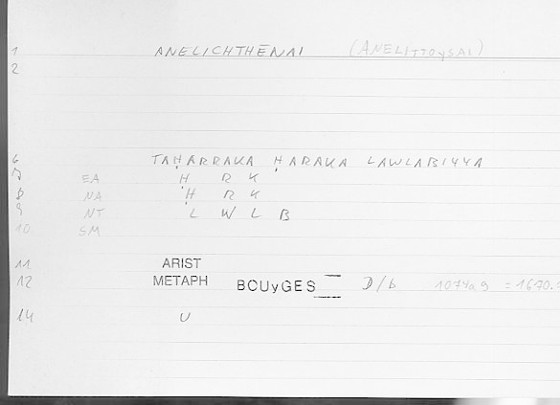 1 ANELICHTHĒNAI (ANELITTOYSAI)
2
6 TAḤARRAKA ḤARAKA LAWLABIYYA
7 EA Ḥ R K
8 NA Ḥ R K
9 NT L W L B
10 SM
11 ARIST
12 METAPH BCUyGES D/b 1074a9 = 1670.
14 U